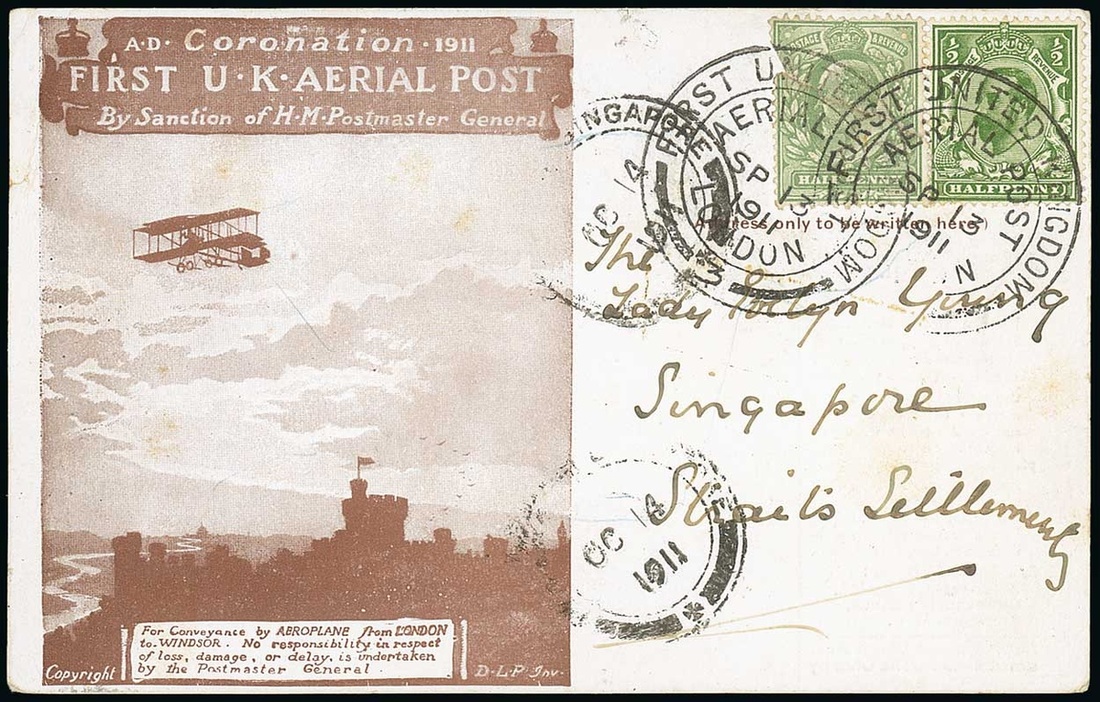 A·D· Coronation ·1911
FIRST U·K·AERIAL POST
By Sanction of H·M·Postmaster General
For Conveyance by AEROPLANE from LONDON
to WINDSOR. No responsibility in respect
of loss, damage, or delay, is undertaken
by the Postmaster General
Copyright
D·L·P· Inv·
POSTAGE & REVENUE
HALFPENNY
½ ½
REVENUE
HALFPENNY
FIRST UNITED
AERIAL
SP 13
1911
LONDON
3
FIRST UNITED KINGDOM
AERIAL POST
SP 13
1911
N
SINGAPORE
OC 14
only to be written here)
The
Lady Young
Singapore
Straits Settlements
OC 14
1911